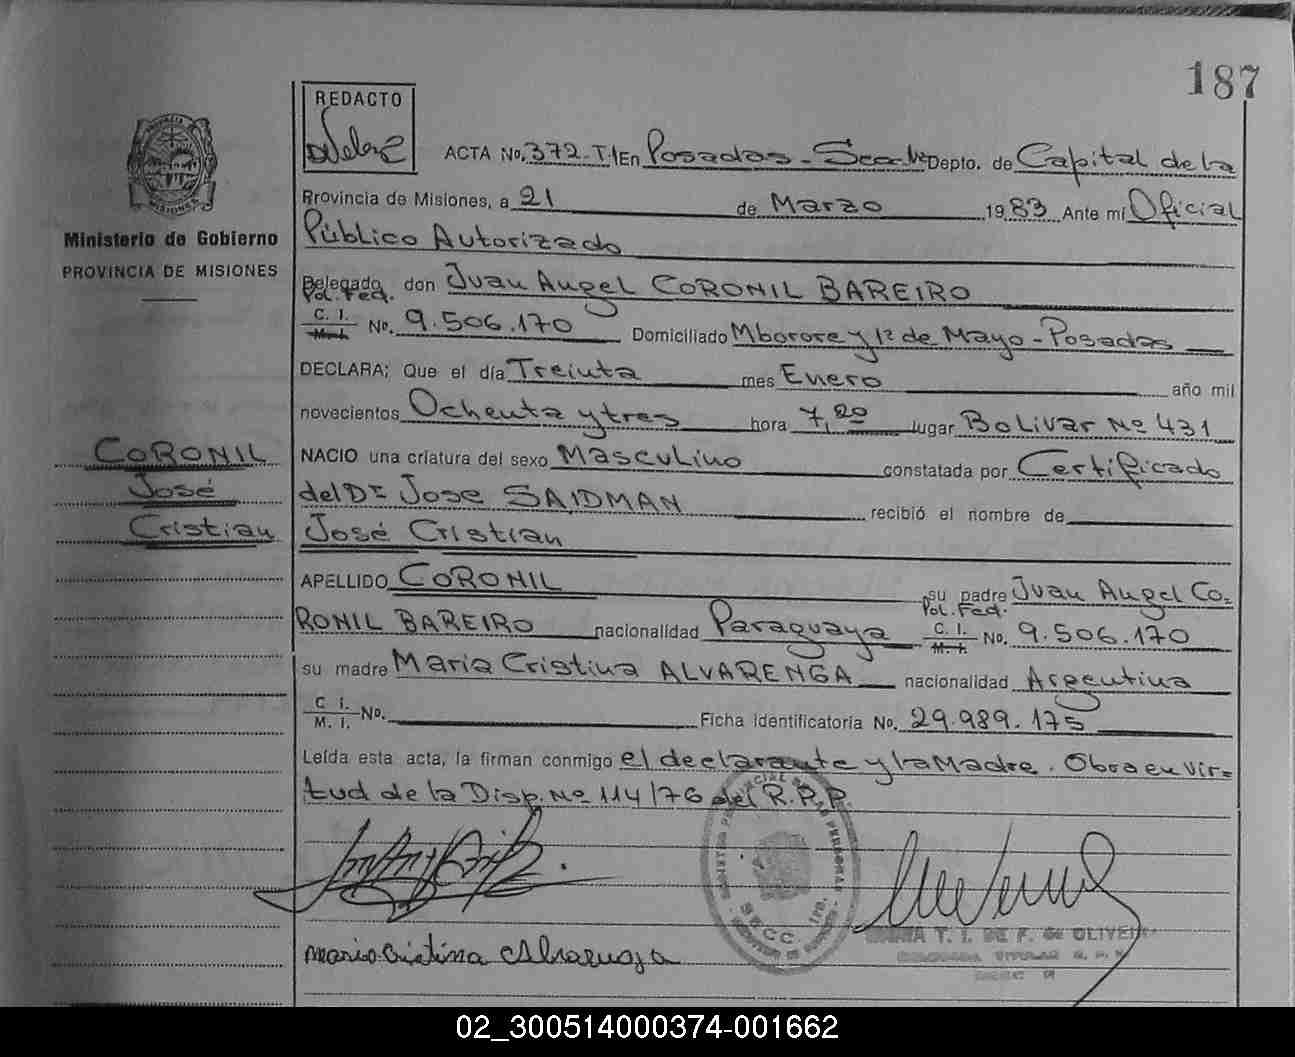 187
REDACTO
ACTA No. 372-T.1 En Posadas - Secc. 1ª Depto. de Capital de la
Provincia de Misiones, a 21 de Marzo 1983 Ante mí Oficial
Ministerio de Gobierno
Público Autorizado
PROVINCIA DE MISIONES
Delegado don Juan Angel CORONIL BAREIRO
Pol. Fed.
C. I.
M. I. No. 9.506.170 Domiciliado Mborore y 1º de Mayo - Posadas
DECLARA; Que el día Treinta mes Enero año mil
novecientos Ochenta y tres hora 7,20 lugar Bolivar Nº 431
CORONIL
NACIO una criatura del sexo Masculino constatada por Certificado
José
del Dr Jose SAIDMAN recibió el nombre de
Cristian
José Cristian
APELLIDO CORONIL su padre Juan Angel Co=
RONIL BAREIRO nacionalidad Paraguaya Pol. Fed. C. I. M. I. No. 9.506.170
su madre Maria Cristina ALVARENGA nacionalidad Argentina
C. I.
M. I. No. Ficha Identificatoria No. 29.989.175
Leída esta acta, la firman conmigo el declarante y la Madre. Obra en vir=
tud de la Disp. Nº 114/76 del R.P.P.
SECC. 1ra.
Maria Cristina Alvarenga
T. I. DE F. de OLIVEIRA
TITULAR
02_300514000374-001662